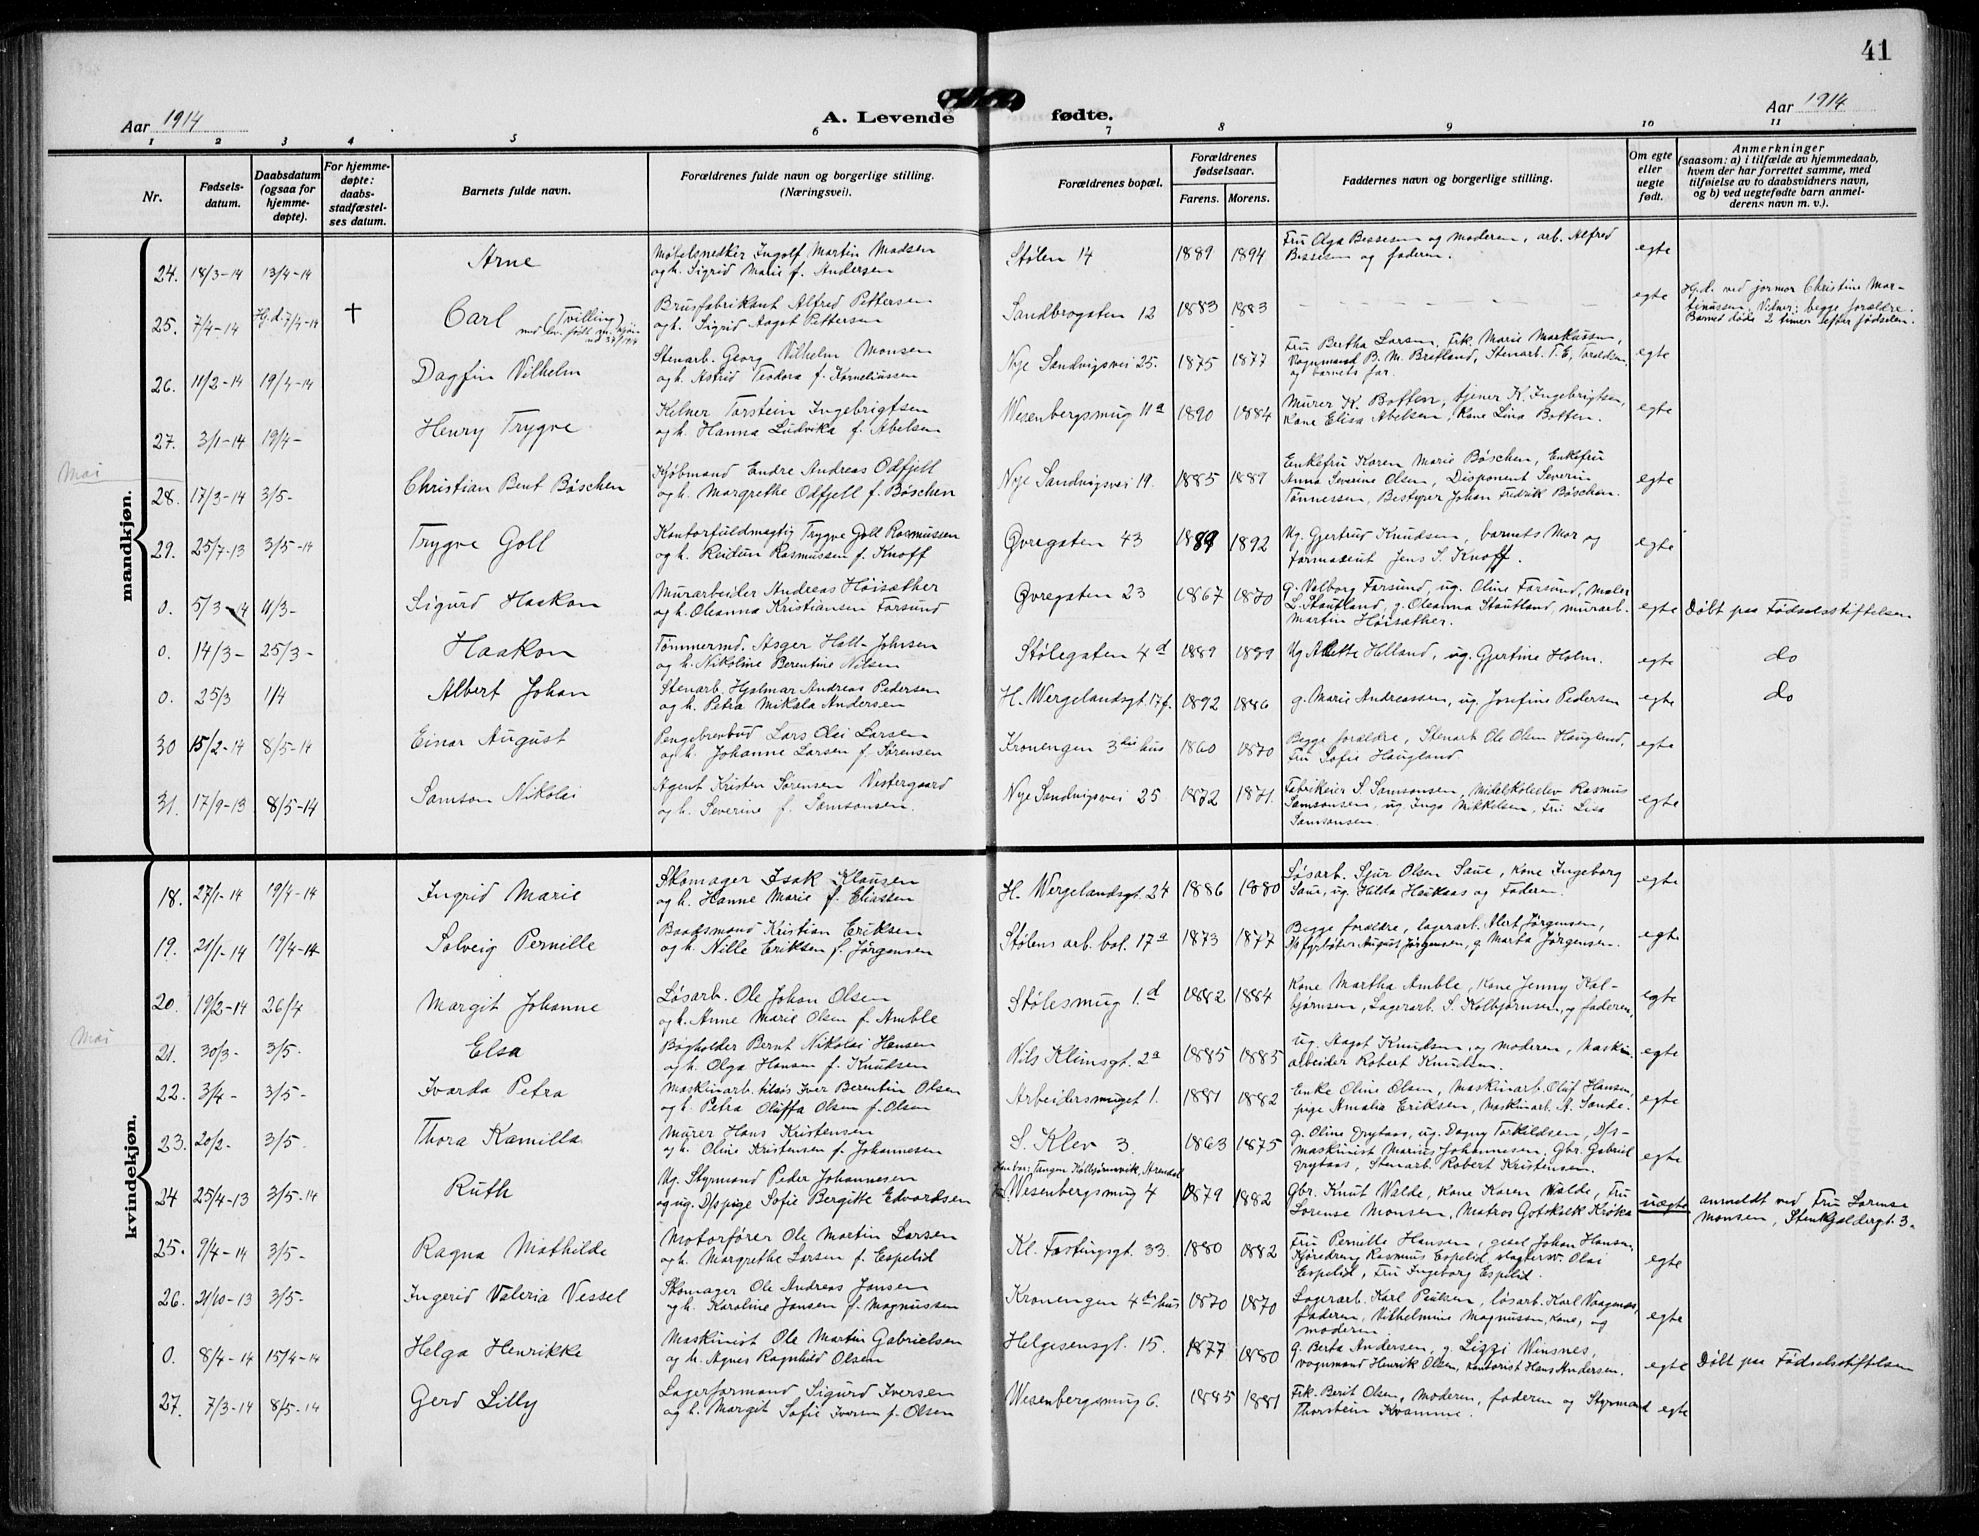 41
Aar 1914
A. Levende fødte.
Aar 1914
1 2 3 4 5 6 7 8 9 10 11
Nr.
Fødsels-
datum.
Daabsdatum
(ogsaa for
hjemme-
døpte).
For hjemme-
døpte:
daabs-
stadfæstel-
ses datum.
Barnets fulde navn.
Forældrenes fulde navn og borgerlige stilling.
(Næringsvei).
Forældrenes bopæl.
Forældrenes
fødselsaar.
Farens. Morens.
Faddernes navn og borgerlige stilling.
Om egte
eller
uegte
født.
Anmerkninger
(saasom: a) i tilfælde av hjemmedaab,
hvem der har forrettet samme, med
tilføielse av to daabsvidners navn,
og b) ved uegtefødte barn anmel-
derens navn m. v.).
mandkjøn.
24. 18/3-14 13/4-14 Arne
Møbelsnedker Ingolf Martin Madsen
og h. Sigrid Marie f. Andersen
Stølen 14 1889 1894
Fru Olga Bessesen og moderen, arb. Alfred
Bessesen og faderen.
egte
25. 7/4-14 Hj.d. 7/4-14 † Carl (Tvilling)
Brusfabrikant Alfred Pettersen
og h. Sigrid Aagot Pettersen
Sandbrogaten 12 1883 1883
egte
Hj.d. ved jormor Christine Mar-
tinussen, Vidner: begge forældre.
Barnet døde 2 timer efter fødselen.
26. 11/2-14 19/4-14 Dagfin Vilhelm
Stenarb. Georg Vilhelm Monsen
og h. Astrid Teodora f. Korneliussen
Nye Sandvigsvei 25. 1875 1877
Fru Bertha Larsen, Frk. Marie Markussen,
Vognmand B. M. Breiland, Stenarb. T. E. Toraldsen,
og barnets far.
egte
27. 3/1-14 19/4- Henry Trygve
Kelner Torstein Ingebrigtsen
og h. Hanna Ludvika f. Abelsen
Wesenbergsmug 11a 1890 1884
Murer K. Botten, tjener K. Ingebrigtsen,
Kone Elisa Abelsen, Kone Lina Botten.
egte
Mai
28. 17/3-14 3/5- Christian Bent Bøschen
Kjøbmand Endre Andreas Odfjell
og h. Margrethe Odfjell f. Bøschen
Nye Sandvigsvei 19. 1885 1889
Enkefru Karen Marie Bøschen, Enkefru
Anna Severine Olsen, Disponent Severin
Tønnessen, Bestyrer Johan Fredrik Bøschen.
egte
29. 25/7-13 3/5-14 Trygve Goll
Kontorfuldmægtig Trygve Goll Rasmussen
og h. Reidun Rasmussen f. Knoff
Øvregaten 43 1889 1892
Ug. Gjertrud Knudsen, barnets Mor og
farmaceut Jens S. Knoff.
egte
0. 5/3-14 11/3- Sigurd Haakon
Murarbeider Andreas Høisæther
og h. Oleanna Kristiansen Farsund
Øvregaten 23 1867 1870
G. Valborg Farsund, ug. Oline Farsund, Maler
L. Stautland, g. Oleanna Stautland, murarb.
Martin Høisæther.
egte Døbt paa Fødselsstiftelsen
0. 14/3- 25/3- Haakon
Tømmermd. Asger Hall-Johnsen
og h. Nikoline Berentine Nilsen
Stølegaten 4d 1889 1889
Ug Alette Helland, ug. Gjertine Holm.
egte do
0. 25/3 1/4 Albert Johan
Stenarb. Hjalmar Andreas Pedersen
og h. Petra Mikala Andersen
H. Wergelandsgt. 17f. 1892 1886
g. Marie Andreassen, ug. Josefine Pedersen
egte do
30 15/2-14 8/5-14 Einar August
Pengebrevbud Lars Olai Larsen
og h. Johanne Larsen f. Sørensen
Kronengen 3die hus 1860 1870
Begge forældre, Stenarb Ole Olsen Haugland,
Fru Sofie Haugland.
egte
31. 17/9-13 8/5-14 Samson Nikolai
Agent Kristen Sørensen Vestergaard
og h. Severine f. Samsonsen.
Nye Sandvigsvei 25 1872 1871.
Fabrikeier S. Samsonsen, Middelskoleelev Rasmus
Samsonsen, ug. Inga Mikkelsen, Fru Lisa
Samsonsen.
egte
kvindekjøn.
18. 27/1-14 19/4-14 Ingrid Marie
Skomager Isak Klausen
og h. Hanne Marie f. Eliassen
H. Wergelandsgt. 24 1886 1880
Løsarb. Sjur Olsen Saue, Kone Ingeborg
Saue, ug. Hilda Haukaas og Faderen.
egte
19. 21/1-14 19/4-14 Solveig Pernille
Baadsmand Kristian Eriksen
og h. Nille Eriksen f. Jørgensen
Stølens arb. bol. 17a 1873 1877
Begge forældre, lagerarb. Alert Jørgensen,
August Jørgensen, g. Marta Jørgensen.
egte
20. 19/2-14 26/4 Margit Johanne
Løsarb. Ole Johan Olsen
og h. Anne Marie Olsen f. Amble
Stølesmug 1.d 1882 1884
Kone Martha Amble, Kone Jenny Kol-
bjørnsen, Lagerarb. S. Kolbjørnsen, og faderen,
egte
Mai
21. 30/3- 3/5. Elsa
Bogholder Bernt Nikolai Hansen
og h. Olga Hansen f. Knudsen
Nils Kleimsgt. 2a 1885 1885
ug. Aagot Knudsen, og moderen, Maskin-
arbeider Robert Knudsen.
egte
22. 3/4- 3/5- Ivarda Petra
Maskinarb. tilsjøs Iver Berentin Olsen
og h. Petra Oluffa Olsen f. Olsen
Arbeidersmuget 1. 1881 1882
Enke Oline Olsen, Maskinarb. Oluf Hansen,
pige Amalia Eriksen, Maskinarb. A. Sande.
egte
23. 20/2- 3/5. Thora Kamilla
Murer Hans Kristensen
og h. Oline Kristensen f. Johannesen
S. Klev 3. 1863 1875
g. Oline Grytaas, ug. Dagny Torkildsen, D/s-
maskinist Marius Johannesen, Gbr. Gabriel
Grytaas, Stenarb. Robert Kristensen.
egte
24 25/4-13 3/5-14 Ruth
Ug. Styrmand Peder Johannesen
og ug. D/spige Sofie Bergitte Edvardsen
Han bor: Tangen Kolbjørnsvik, Arendal
Wesenbergsmug 4 1879 1882
Gbr. Knut Walde, Kone Karen Walde, Fru
Lorense Monsen, Matros Gotskalk Krøka
uegte
anmeldt ved Fru Lorense
Monsen, Stenkjeldergt. 3-
25. 9/4-14 3/5- Ragna Mathilde
Motorfører Ole Martin Larsen
og h. Margrethe Larsen f. Espelid
Kl. Fastingsgt. 33. 1880 1882
Fru Pernille Hansen, gesel Johan Hansen,
Kjøredreng Rasmus Espelid, slagtersv. Olai
Espelid, Fru Ingeborg Espelid.
egte
26. 21/10-13 3/5- Ingerid Valeria Vessel
Skomager Ole Andreas Jansen
og h. Karoline Jansen f. Magnussen
Kronengen 4de hus 1870 1870
Lagerarb. Karl Paulsen, løsarb. Karl Vaagenæs,
faderen, Vilhelmine Magnussen Kone, og
moderen.
egte
0. 8/4-14 15/4-14 Helga Henrikke
Maskinist Ole Martin Gabrielsen
og h. Agnes Ragnhild Olsen
Helgesensgt. 15. 1877 1880
g. Berta Andersen, g. Lizzi Winsnes,
vognmand Henrik Olsen, kontorist Hans Andersen.
egte Døbt paa Fødselsstiftelsen
27. 7/3-14 8/5-14 Gerd Lilly
Lagerformand Sigurd Iversen
og h. Margit Sofie Iversen f. Olsen
Wesenbergsmug 6. 1885 1881
Frk. Berit Olsen, moderen, faderen og Styrmand
Thorstein Kvamme.
egte